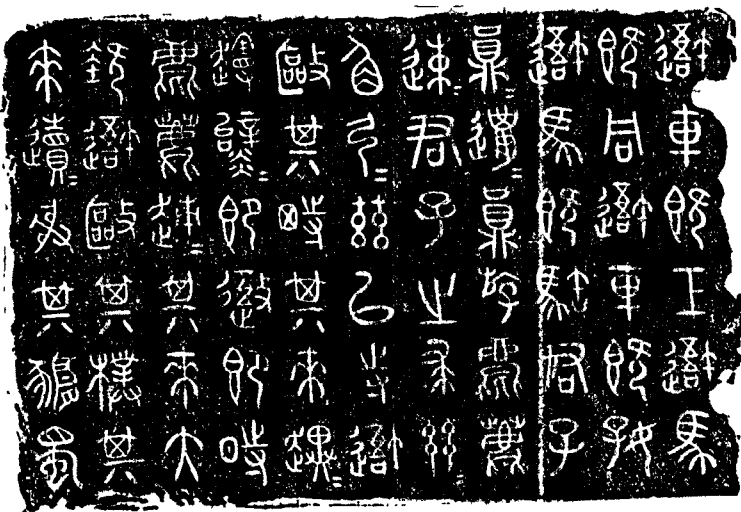 吾車既工吾馬
既同吾車既好
吾馬既䮽君子
員=邋=員斿麀鹿
速=君子之求
角弓=茲以寺吾
敺其特其來趩=
即禦即時
麀鹿趚=其來大
吾敺其樸其
來射其豜蜀